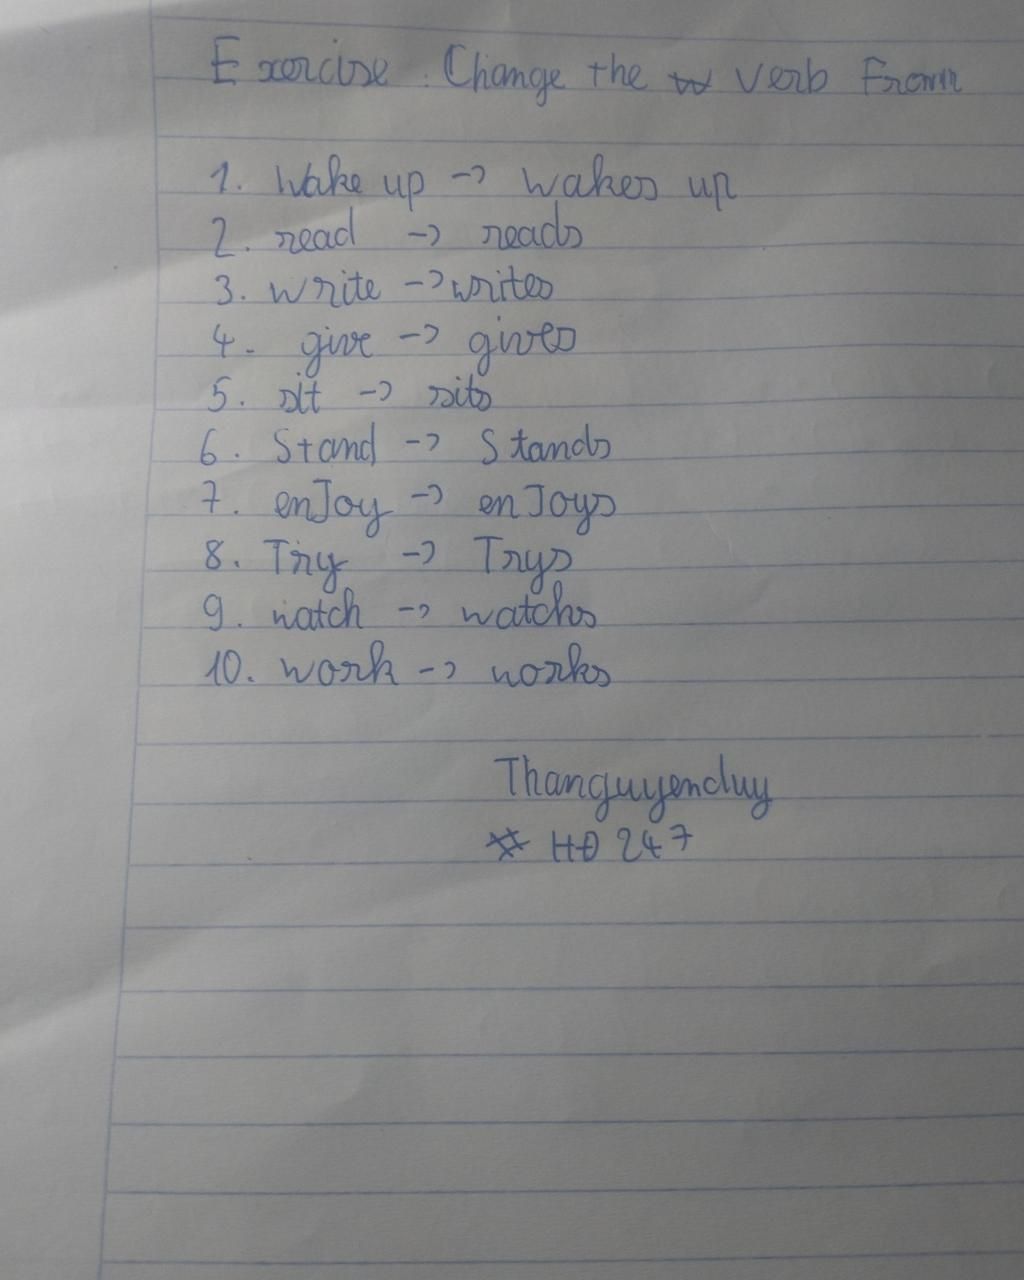 Exercise. Change the w verb From
1. Wake up -> wakes up
2. read -> reads
3. write -> writes
4. give -> gives
5. sit -> sits
6. Stand -> Stands
7. enJoy -> enJoys
8. Try -> Trys
9. watch -> watchs
10. work -> works
Thanguyenduy
# HD 247